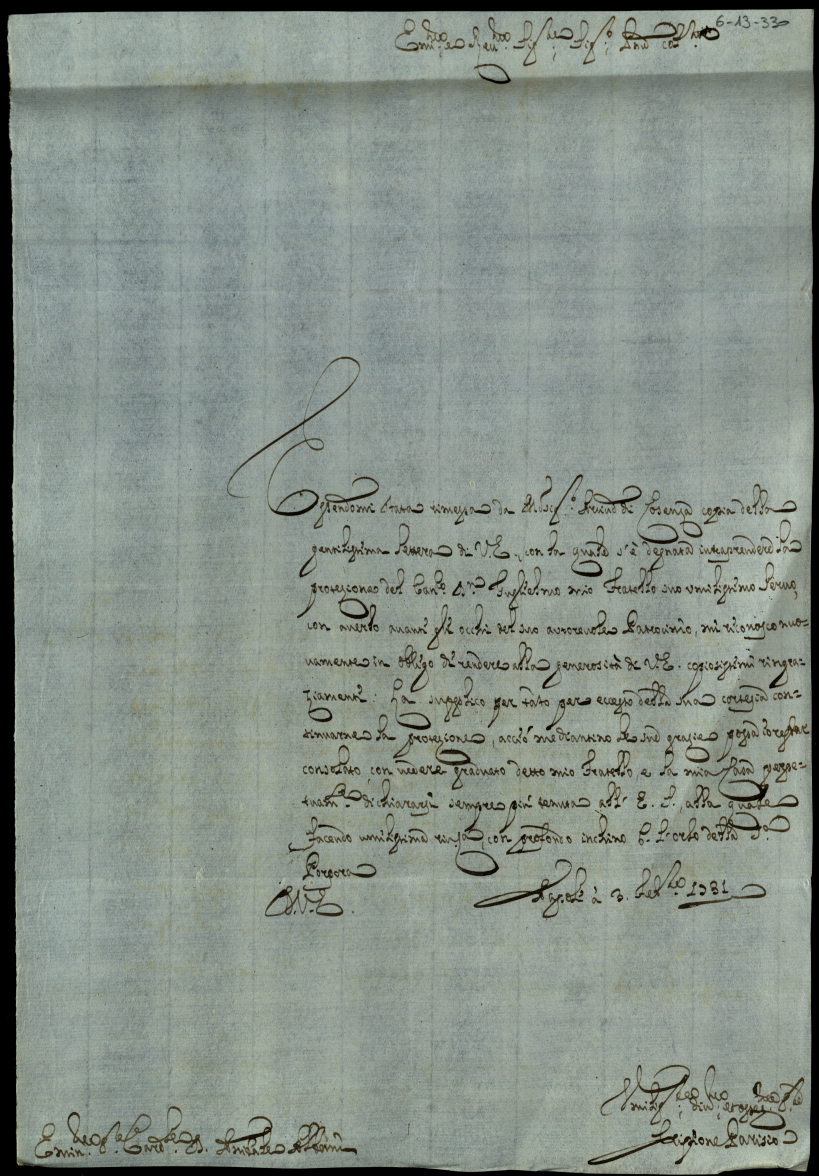 6-13-330
Em.mo e Rev.mo Sig.re Sig.r P.rone
Essendomi stata rimessa da Monsig.r di Cosenza copia della
gentilissima lettera di V.E., con la quale s'è degnata intraprendere la
protezione del Can.co D.n Guglielmo mio Fratello suo umilissimo servo,
con averlo avanti gli occhi del suo autorevole Patrocinio, mi riconosco nuo=
vamente in obbligo di rendere alla generosità di V.E. copiosissimi ringra=
ziamenti: La supplico per tãto per eccesso della sua cortesia con=
tinuarne la protezione, acciò mediantino le sue grazie possa io restar
consolato con vedere graduato detto mio Fratello, e la mia Casa perpe=
tuam.te dichiararsi sempre più tenuta all' E. S., alla quale
facendo umilissima riv.za, con profondo inchino b. l'orlo della S.a
Porpora
D.V.E. Napoli à 3. Sett.bre 1731
Umiliss.o div.mo et oss.mo
Scipione Parisio
Emin.mo Sig.r Card.le D. Annibale Albani